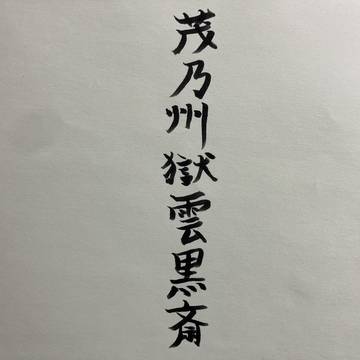 茂乃州獄雲黒斎